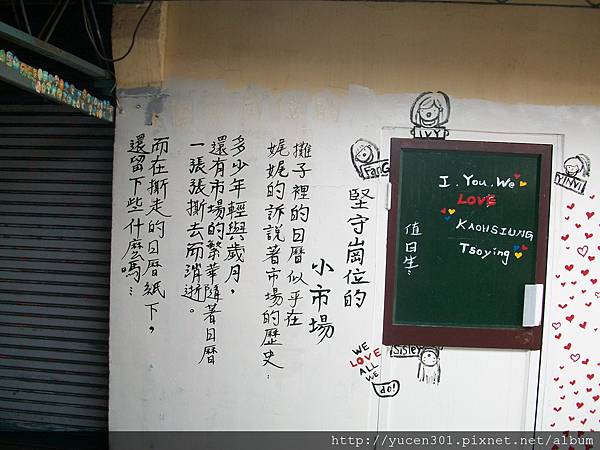 堅守崗位的
小市場
攤子裡的日曆似乎在
娓娓的訴說著市場的歷史：
多少年輕與歲月，
還有市場的繁華隨著日曆
一張張撕去而消逝。
而在撕走的日曆紙下，
還留下些什麼嗎…
IVY
FANG
YINYI
I. You. We
LOVE
KAOHSIUNG
Tsoying
值日生：
Sisley
WE
LOVE
ALL
WE
do!
http://yucen301.pixnet.net/album